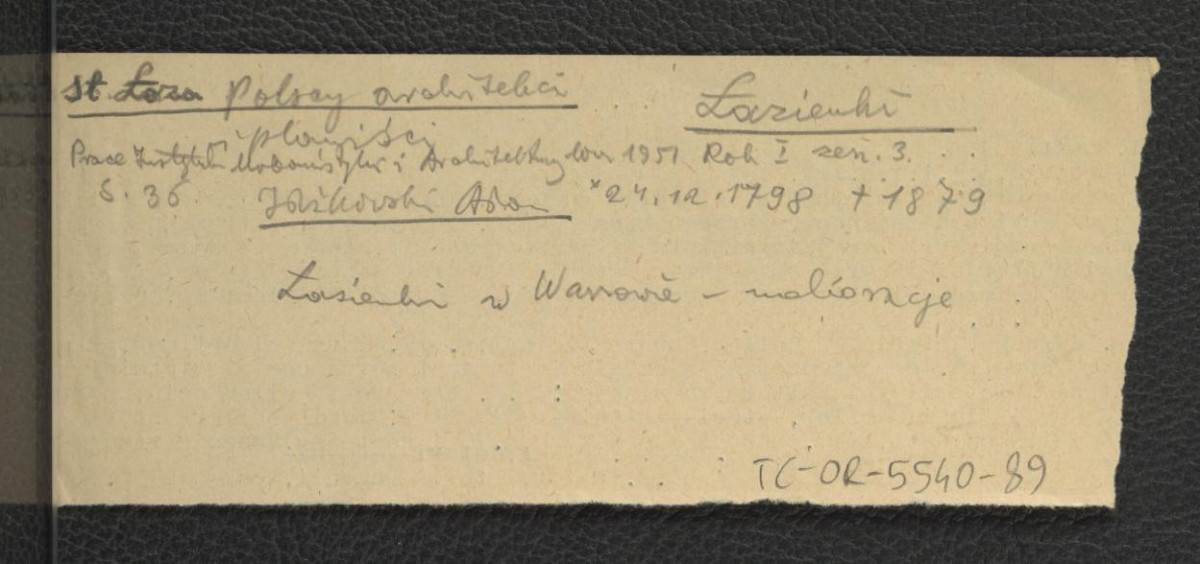 St. Łoza Polscy architekci
Łazienki
i planiści
Prace Instytutu Urbanistyki i Architektury War 1951 Rok I zesz. 3.
S. 36
Idźkowski Adam *24.12.1798 +1879
Łazienki w Warszawie –
TC-OR-5540-89